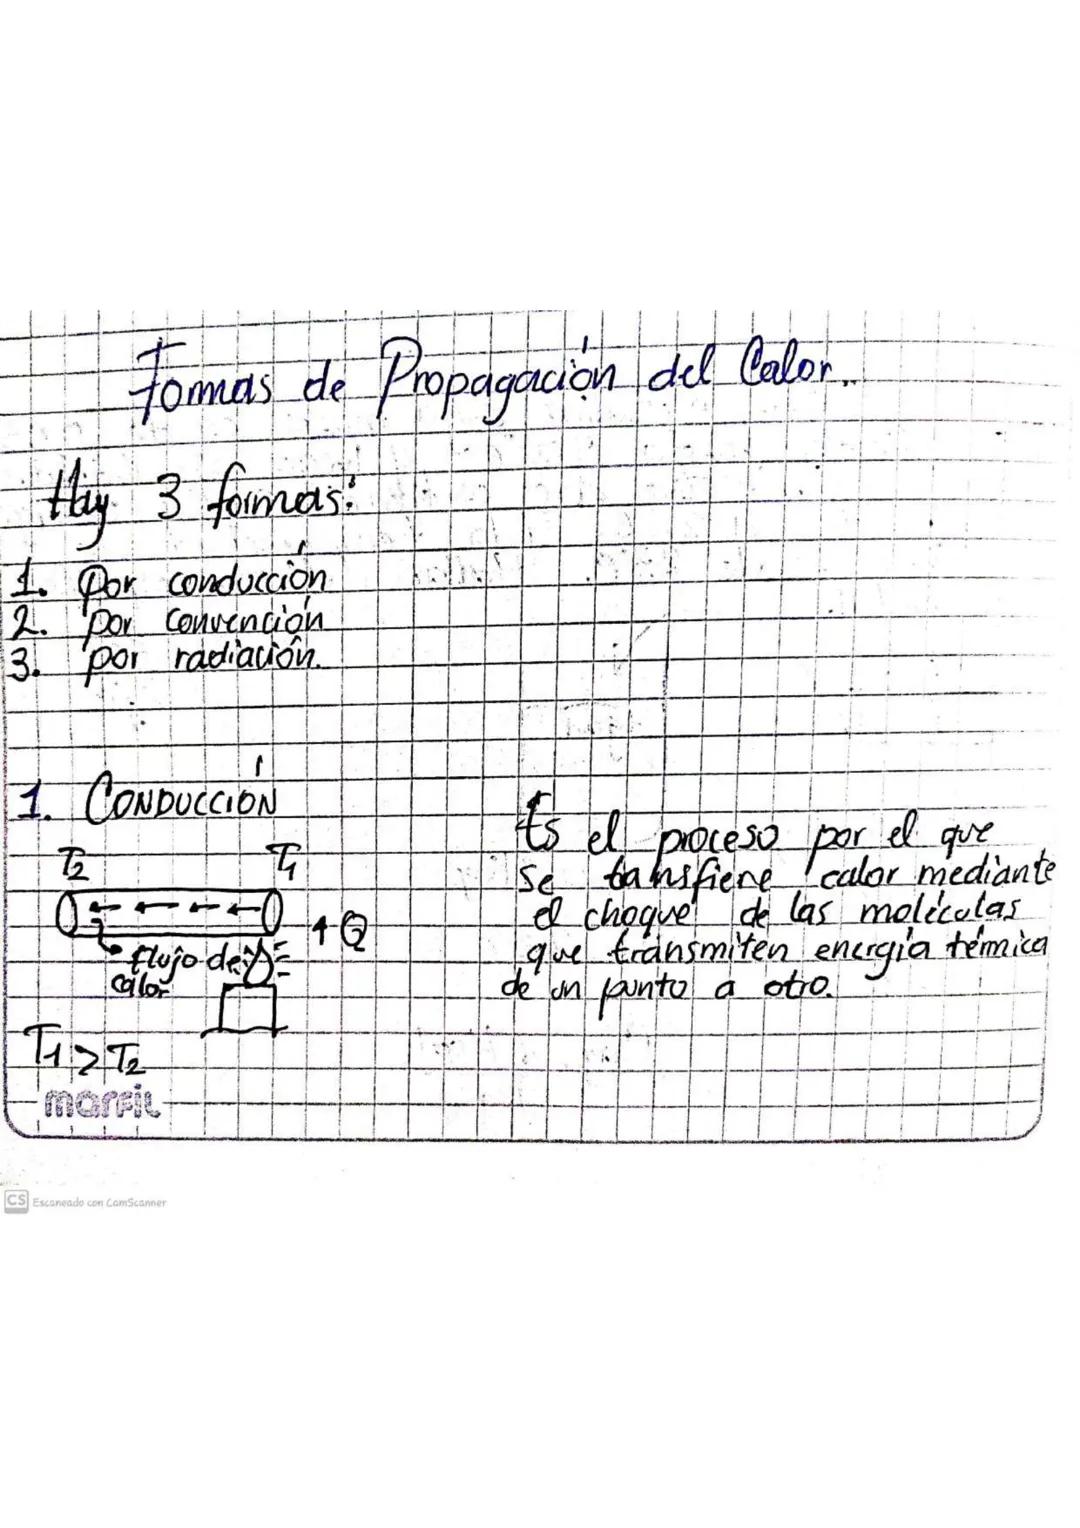 Formas de Propagación del Calor..
Hay 3 formas:
1. Por conducción
2. por convención
3. por radiación.
1. CONDUCCIÓN
T2 T1
↑Q
flujo de
calor
T1 > T2
Es el proceso por el que
se transfiene calor mediante
el choque de las moléculas
que transmiten energía térmica
de un punto a otro.
marfil
CS Escaneado con CamScanner